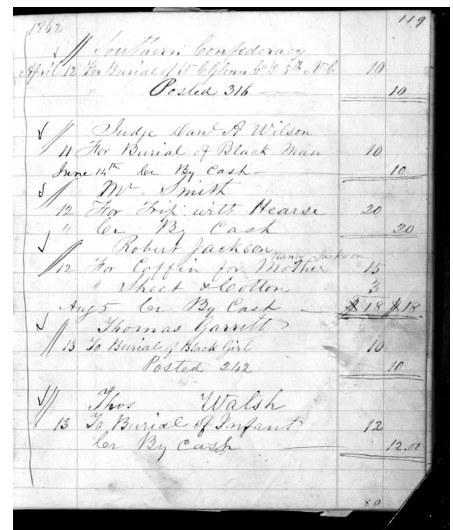 119
1862
// Southern Confederacy
April 12 For Burial of Co 5th N C 10
" Posted 316 — 10
// Judge Danl A Wilson
11 For Burial of Black Man 10
June 14th Cr By Cash — 10
// Mr Smith
12 For Trip with Hearse 20
" Cr By Cash 20
// Robert Jackson
Nancy Jackson
12 For Coffin for Mother 15
" Sheet & Cotton 3
Aug 5 Cr By Cash — $18 $18
Thomas Garritt
// 13 To Burial of Black Girl 10
Posted 242 10
// Thos Walsh
13 To Burial of Infant 12
Cr By Cash — 12.00
80